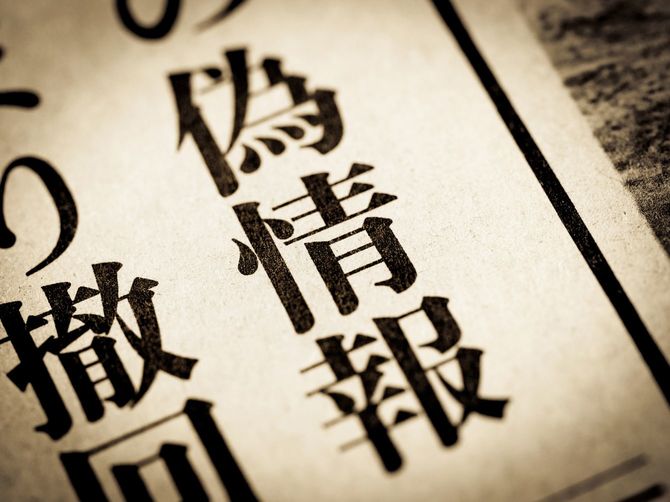 の偽情報
り撤回